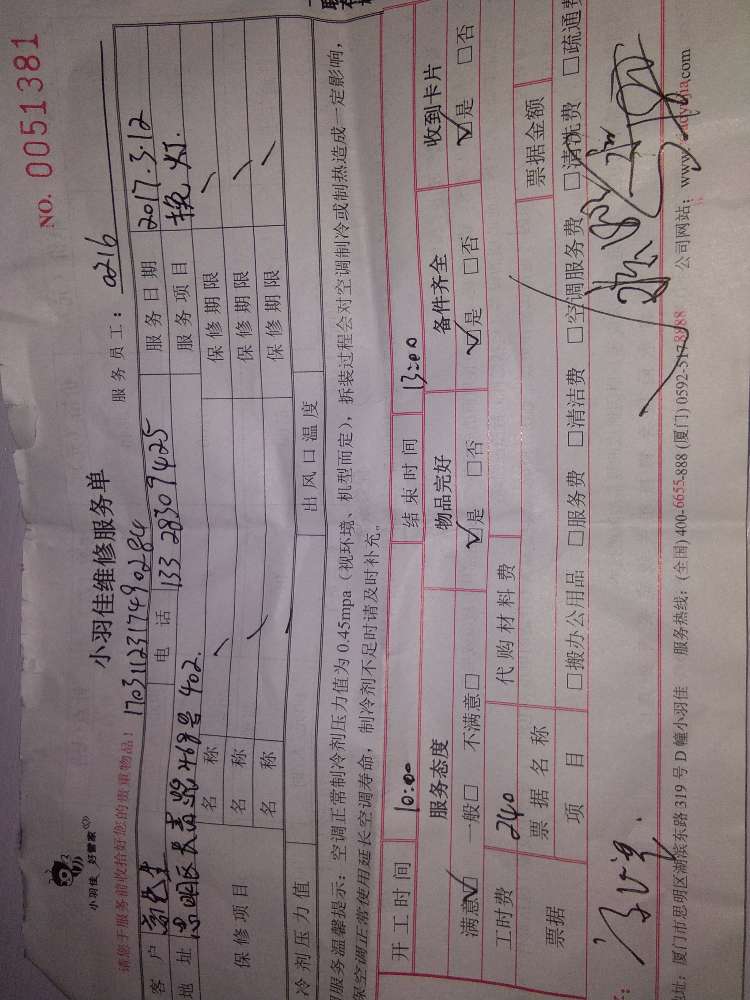 小羽佳 好管家
小羽佳维修服务单
NO. 0051381
请您于服务前收拾好您的贵重物品! 1703112317490284
服务员工: 0216
客户 电话 133 28309425 服务日期 2017.3.12
地址 思明区长青路468号402. 服务项目 换灯.
保修项目 名称 保修期限
名称 保修期限
名称 保修期限
冷剂压力值 出风口温度
服务温馨提示: 空调正常制冷剂压力值为0.45mpa (视环境、机型而定), 拆装过程会对空调制冷或制热造成一定影响,
保空调正常使用延长空调寿命, 制冷剂不足时请及时补充。
开工时间 10:00 结束时间 13:00
服务态度 物品完好 备件齐全 收到卡片
满意☑ 一般□ 不满意□ ☑是 □否 ☑是 □否 ☑是 □否
工时费 240 代购材料费
票据 票据名称 票据金额
项目 □搬办公用品 □服务费 □清洁费 □空调服务费 □清洗费 □疏通费
地址: 厦门市思明区湖滨东路319号D幢小羽佳 服务热线: (全国) 400-6655-888 (厦门) 0592-5178988 公司网站: